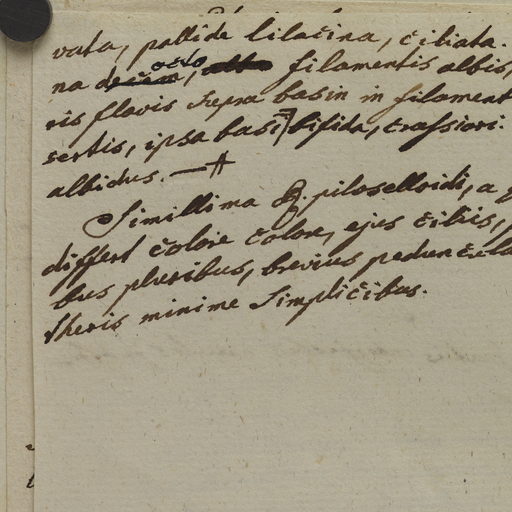 vata, pallide lilacina, ciliata.
na decem, octo alba filamentis albis,
ris flavis supra basin in filament
sertis, ipsa basi bifida, crassiori.
albidus. —
Simillima piloselloidi, a
differt colore colore, ejus ciliis,
bus pluribus, brevius peduncula
theris minime Simplicibus.